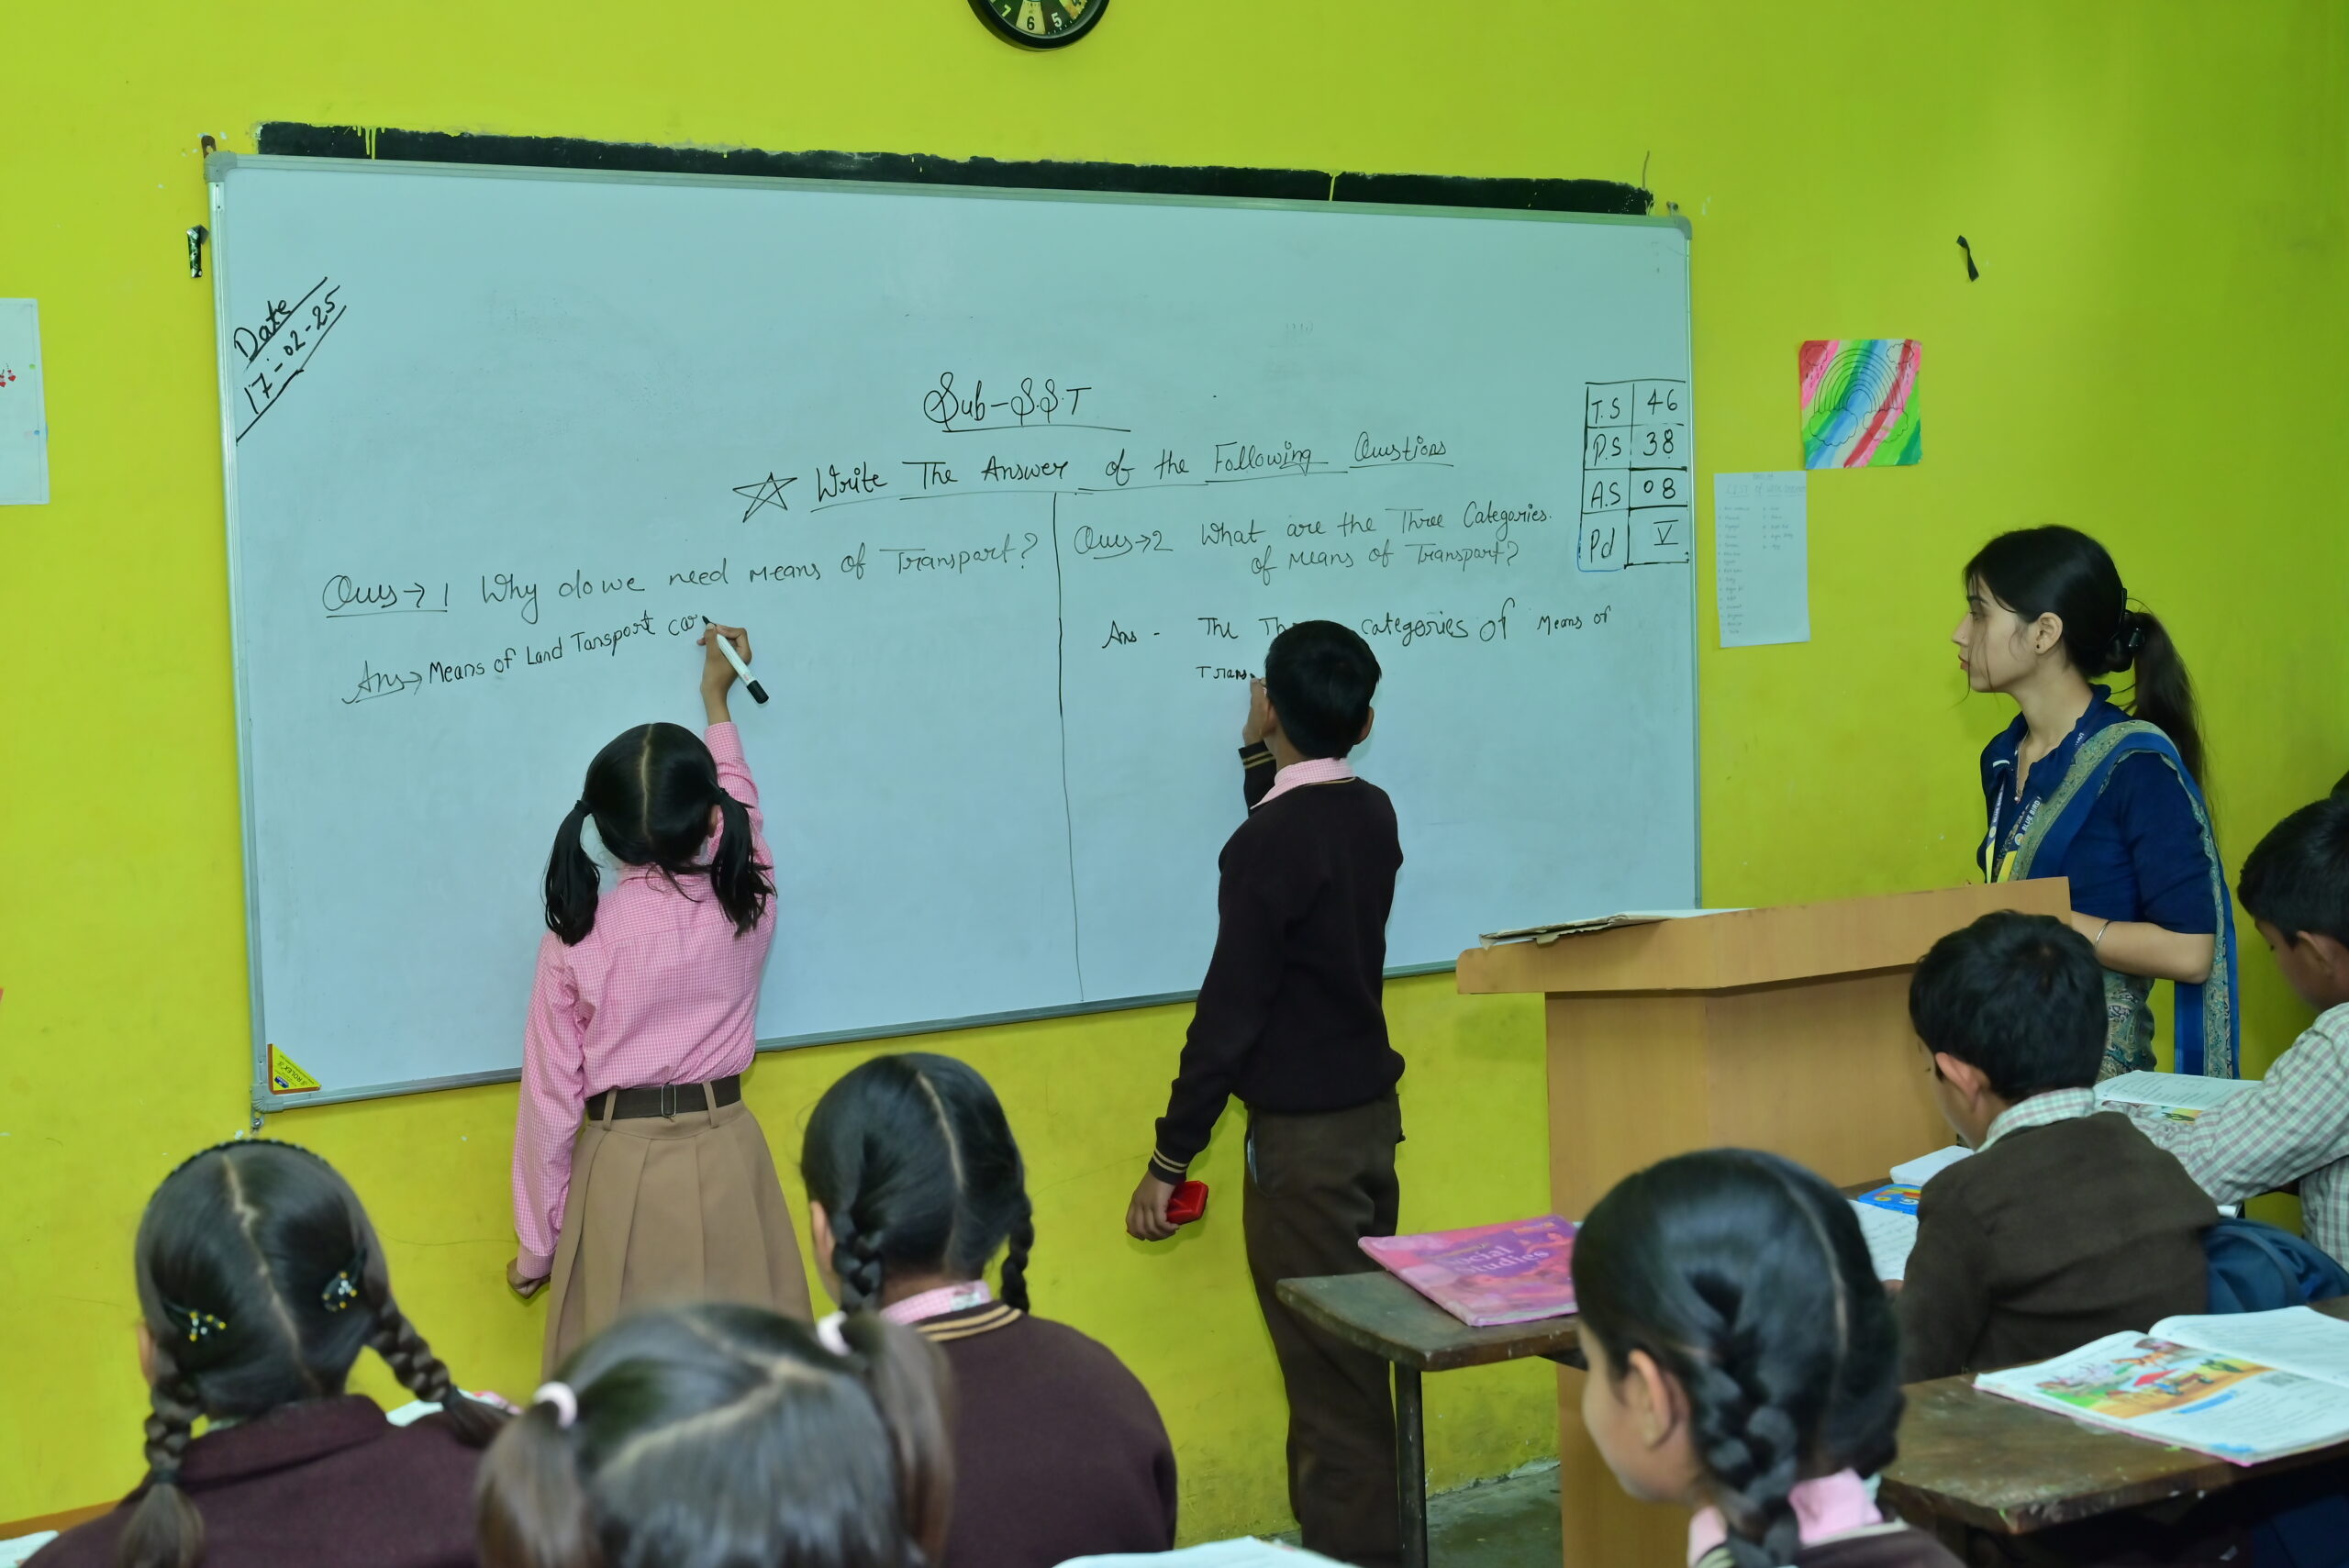 7 6 5
Date
17-02-25
Sub-S.S.T
Write The Answer of the Following Questions
T.S 46
P.S 38
A.S 08
Pd V
Ques→1 Why do we need means of Transpart?
Ans→ Means of Land Tansport car
Ques→2 What are the Three Categories.
of means of Transpart?
Ans - The Th categories of Means of
Trans
BLUE BIRD
Social
Studies